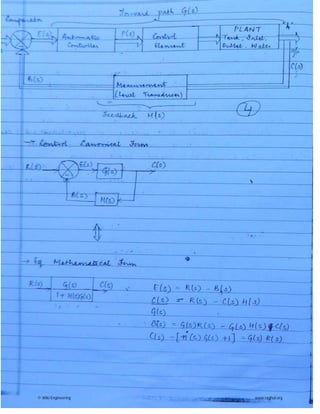 Forward path G(s)
Comparator
E(s)
Automatic
Controller
P(s)
Control
Element
PLANT
Tank, Inlet,
Outlet, Water
C(s)
B(s)
Measurement
(Level Transducer)
Feedback H(s)
4
→ Control Canonical Form
R(s) E(s) G(s) C(s)
B(s) H(s)
→ Eq Mathematical Form
R(s) G(s) C(s)
1 + H(s)G(s)
E(s) = R(s) - B(s)
C(s) = R(s) - C(s) H(s)
G(s)
C(s) = G(s)R(s) - G(s) H(s) C(s)
C(s) - [H(s) G(s) + 1] = G(s) R(s)